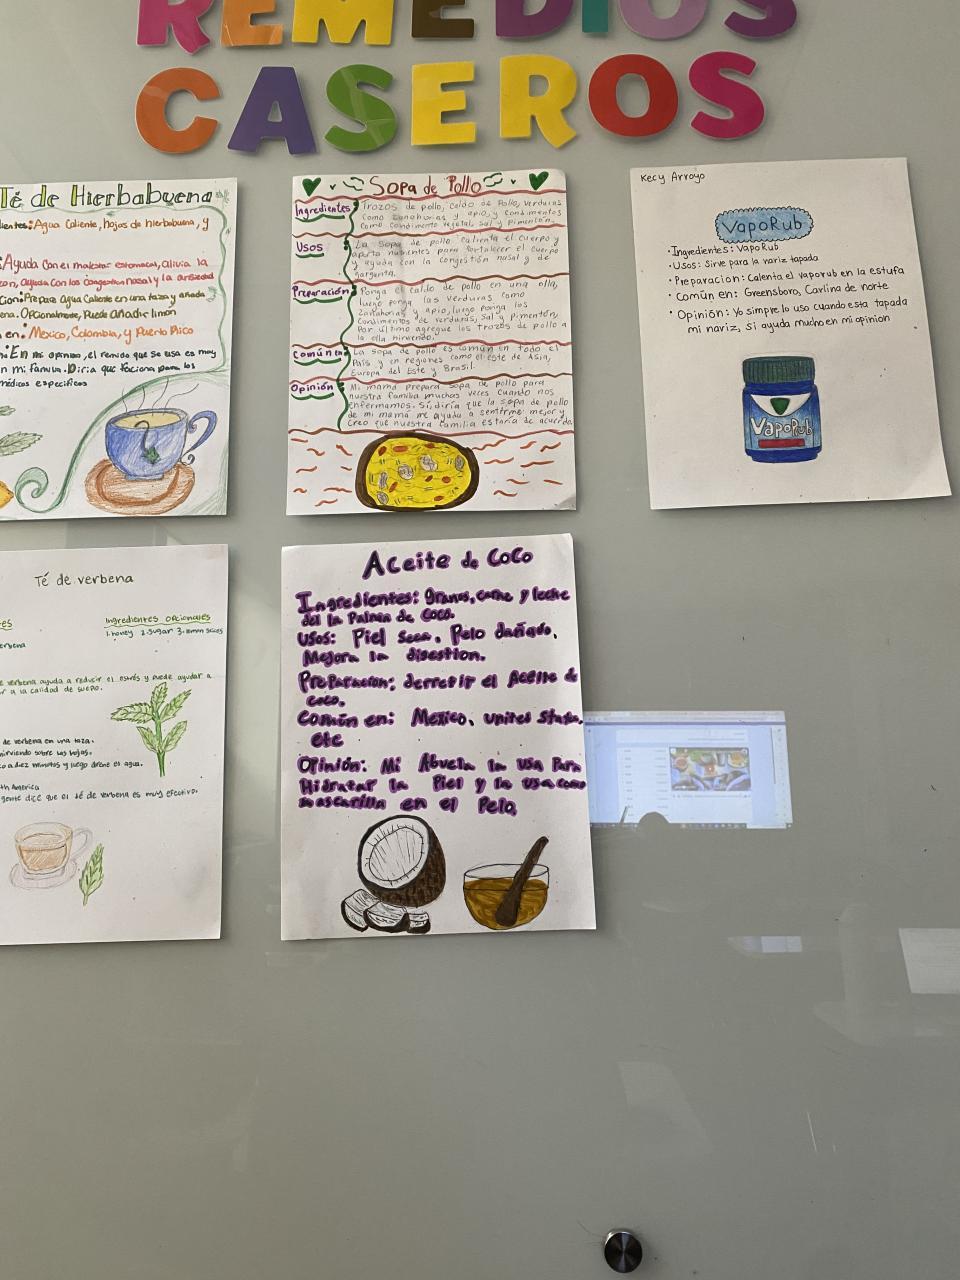 REMEDIOS
CASEROS
Té de Hierbabuena
ientes: Agua Caliente, hojas de hierbabuena, y
: Ayuda con el malestar estomacal, alivia la
on, ayuda con los congestion nasal y la ansiedad
cion: Prepare Agua Caliente en una taza y añada
ena. Opcionalmente, Puede Añadir limon
n en: Mexico, Colombia, y Puerto Rico
n: En mi opinion, el remido que se usa es muy
n mi familia. Diria que faciona para los
médicos especificos
Sopa de Pollo
Ingredientes Trozos de pollo, caldo de Pollo, verduras
como zanahorias y apio, y condimentos
como condimento vegetal, sal y pimentón.
Usos La sopa de pollo calienta el cuerpo y
aporta nutrientes para fortalecer el cuerpo
y ayuda con la congestión nasal y de
garganta.
Preparación Ponga el caldo de pollo en una olla,
luego ponga las verduras como
zanahorias y apio, luego ponga los
condimentos de verduras, sal y pimentón,
Por último agregue los trozos de pollo a
la olla hirviendo.
Común en La sopa de pollo es común en todo el
País y en regiones como el este de Asia,
Europa del Este y Brasil.
Opinión Mi mamá prepara sopa de pollo para
nuestra familia muchas veces cuando nos
enfermamos. Sí, diría que la sopa de pollo
de mi mamá me ayuda a sentirme mejor y
creo que nuestra familia estaría de acuerdo.
Kecy Arroyo
VapoRub
• Ingredientes: VapoRub
• Usos: Sirve para la nariz tapada
• Preparacion: Calenta el vaporub en la estufa
• Común en: Greensboro, Carlina de norte
• Opinión: Yo simpre lo uso cuando esta tapada
mi nariz, Si ayuda mucho en mi opinion
VapoRub
Té de verbena
es
Ingredientes opcionales
1. honey 2. sugar 3. lemon slices
erbena
e verbena ayuda a reducir el estrés y puede ayudar a
r a la calidad de sueño.
de verbena en una taza.
hirviendo sobre las hojas.
co a diez minutos y luego drene el agua.
th America
gente dice que el té de verbena es muy efectivo.
Aceite de Coco
Ingredientes: Granos, carne y leche
del la Palma de Coco.
Usos: Piel Seca, Pelo dañado,
Mejora la disestion.
Preparacion: derretir el Aceite de
coco.
Común en: Mexico, united states,
etc
Opinión: Mi Abuela la usa Para
Hidratar la Piel y la usa como
mascarilla en el Pelo.